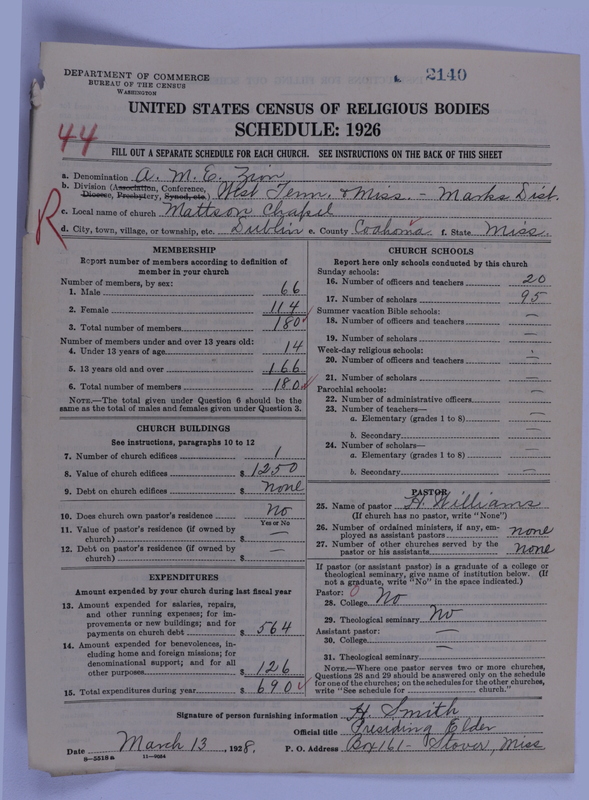 DEPARTMENT OF COMMERCE
BUREAU OF THE CENSUS
WASHINGTON
2140
UNITED STATES CENSUS OF RELIGIOUS BODIES
SCHEDULE: 1926
44
FILL OUT A SEPARATE SCHEDULE FOR EACH CHURCH. SEE INSTRUCTIONS ON THE BACK OF THIS SHEET
R
a. Denomination A. M. E. Zion
b. Division (Association, Conference, Diocese, Presbytery, Synod, etc.) West Tenn. & Miss. - Marks Dist.
c. Local name of church Mattson Chapel
d. City, town, village, or township, etc. Dublin e. County Coahoma f. State Miss.
MEMBERSHIP
Report number of members according to definition of
member in your church
Number of members, by sex:
1. Male 66
2. Female 114
3. Total number of members 180
Number of members under and over 13 years old:
4. Under 13 years of age 14
5. 13 years old and over 166
6. Total number of members 180
NOTE.—The total given under Question 6 should be
same as the total of males and females given under Question 3.
CHURCH BUILDINGS
See instructions, paragraphs 10 to 12
7. Number of church edifices 1
8. Value of church edifices $1250
9. Debt on church edifices $ none
10. Does church own pastor's residence No
Yes or No
11. Value of pastor's residence (if owned by
church) $ —
12. Debt on pastor's residence (if owned by
church) $ —
EXPENDITURES
Amount expended by your church during last fiscal year
13. Amount expended for salaries, repairs,
and other running expenses; for im-
provements or new buildings; and for
payments on church debt $ 564
14. Amount expended for benevolences, in-
cluding home and foreign missions; for
denominational support; and for all
other purposes $ 126
15. Total expenditures during year $ 690
CHURCH SCHOOLS
Report here only schools conducted by this church
Sunday schools:
16. Number of officers and teachers 20
17. Number of scholars 95
Summer vacation Bible schools:
18. Number of officers and teachers —
19. Number of scholars —
Week-day religious schools:
20. Number of officers and teachers —
21. Number of scholars —
Parochial schools:
22. Number of administrative officers —
23. Number of teachers—
a. Elementary (grades 1 to 8) —
b. Secondary —
24. Number of scholars—
a. Elementary (grades 1 to 8) —
b. Secondary —
PASTOR
25. Name of pastor H. Williams
(If church has no pastor, write "None")
26. Number of ordained ministers, if any, em-
ployed as assistant pastors none
27. Number of other churches served by the
pastor or his assistants none
If pastor (or assistant pastor) is a graduate of a college or
theological seminary, give name of institution below. (If
not a graduate, write "No" in the space indicated.)
Pastor: 0
28. College No
29. Theological seminary No
Assistant pastor: —
30. College —
31. Theological seminary
NOTE.—Where one pastor serves two or more churches,
Questions 28 and 29 should be answered only on the schedule
for one of the churches; on the schedules for the other churches,
write "See schedule for church."
Signature of person furnishing information H. Smith
Official title Presiding Elder
Date March 13, 1928. P. O. Address Box 161 - Stover, Miss
8-5518a 11-9084